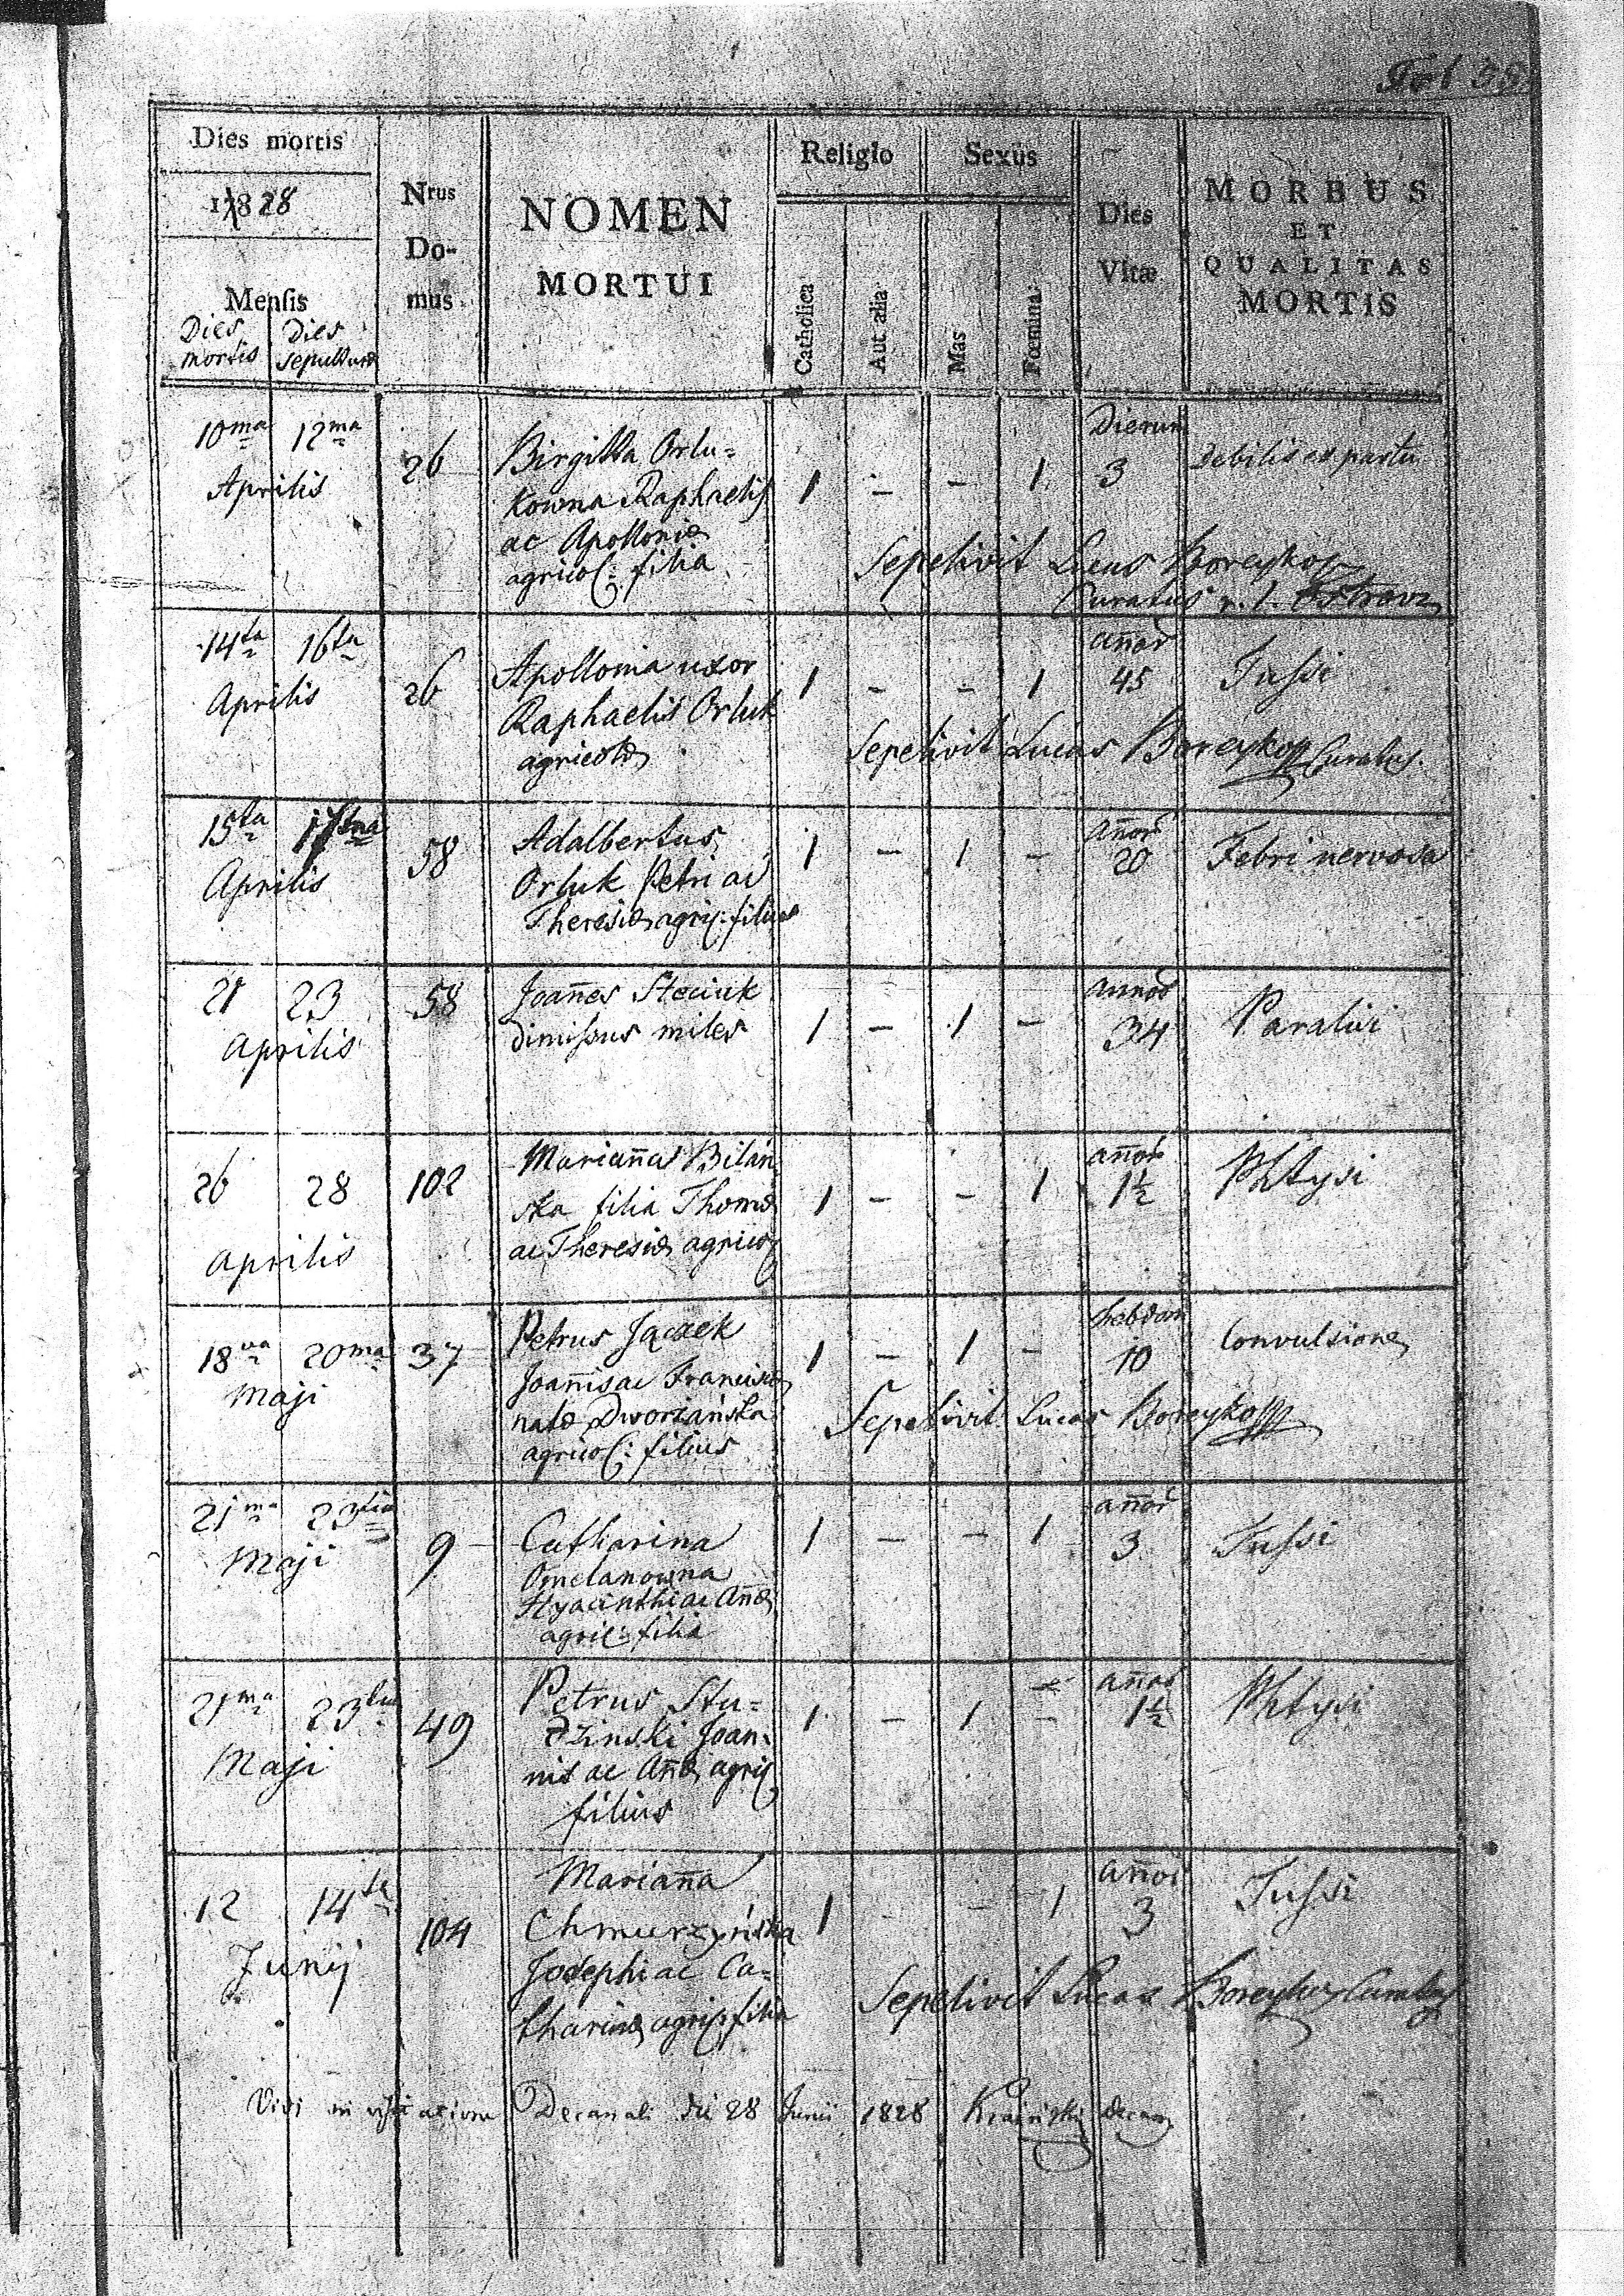 Fol 38
Dies mortis
1828
Mensis
Dies mortis
Dies sepulturæ
Nrus Do- mus
NOMEN
MORTUI
Religio
Catholica
Aut alia
Sexus
Mas
Fœmina
Dies
Vitæ
MORBUS
ET
QUALITAS
MORTIS
10ma 12ma
Aprilis
26
Birgitta Orlu=
kowna Raphaelis
ac Apolloniæ
agricol: filia
1 - - 1
Dierum
3
Debilis ex partu
Sepelivit Lucas Boreyko
Curatus r. l. Ostrov
14ta 16ta
Aprilis
26
Apollonia uxor
Raphaelis Orluk
agricolæ
1 - - 1
añor
45
Tussi
Sepelivit Lucas Boreyko Curatus
15ta 17ma
Aprilis
58
Adalbertus
Orluk Petri ac
Theresiæ agric: filius
1 - 1 -
añor
20
Febri nervosa
21 23
Aprilis
58
Joañes Steciuk
dimissus miles
1 - 1 -
annor
34
Paralisi
26 28
Aprilis
102
Mariaña Bilań
ska filia Thomæ
ac Theresiæ agricol
1 - - 1
añor
1½
Phtysi
18va 20ma
Maji
37
Petrus Jaczek
Joañis ac Francisca
natæ Dworzańska
agricol: filius
1 - 1 -
hebdom
10
Convulsione
Sepelivit Lucas Boreyko
21ma 23tia
Maji
9
Catharina
Omelanowna
Hyacinthi ac Añæ
agric: filia
1 - - 1
añor
3
Tussi
21ma 23tia
Maji
49
Petrus Stu=
dzinski Joan=
nis ac Añæ agric
filius
1 - 1 -
añor
1½
Phtysi
12 14ta
Junij
104
Mariaña
Chmurzyńska
Josephi ac Ca=
tharinæ agric: filia
1 - - 1
añor
3
Tussi
Sepelivit Lucas Boreyko Curatus
Vidi in visitatione Decanali die 28 Junii 1828 Kraiński decan